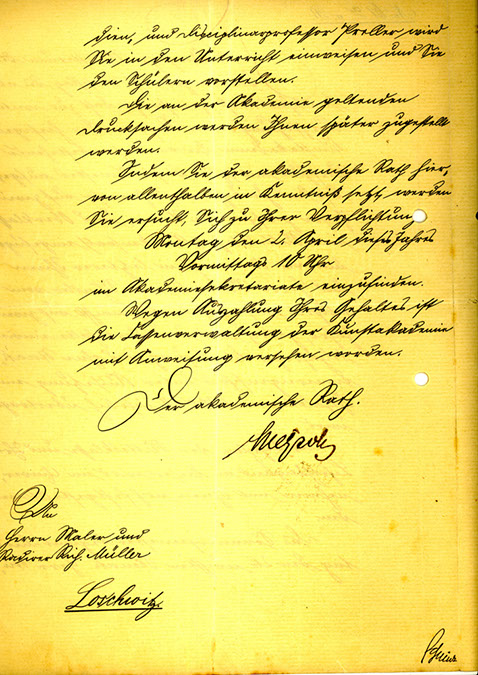 dien, und Disciplinarprofessor Preller, wird
Sie in den Unterricht einweisen und Sie
den Schülern vorstellen.
Die an der Akademie geltenden
Drucksachen werden Ihnen später zugestellt
werden.
Indem Sie der akademische Rath hier-
von allenthalben in Kenntniß setzt, werden
Sie ersucht, Sich zu Ihrer Verpflichtung
Montag den 2. April dieses Jahres
Vormittags 10 Uhr
im Akademiesekretariate einzufinden.
Wegen Auszahlung Ihres Gehaltes ist
die Cassenverwaltung der Kunstakademie
mit Anweisung versehen worden.
Der akademische Rath.
An
Herrn Maler und
Radirer Rich. Müller
Loschwitz.